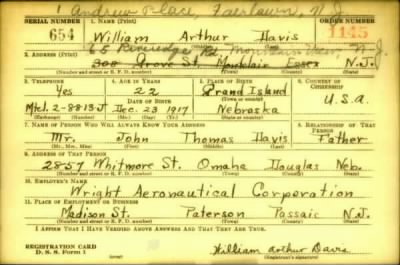 1 Andrew Place Fairlawn, N.J.
SERIAL NUMBER 1. NAME (Print) ORDER NUMBER
654 William Arthur Davis 1145
(First) (Middle) (Last)
65 Riveredge Rd, Mountain View N.J.
2. ADDRESS (Print)
308 Grove St. Montclair Essex N.J.
(Number and street or R. F. D. number) (Town) (County) (State)
3. TELEPHONE 4. AGE IN YEARS 5. PLACE OF BIRTH 6. COUNTRY OF CITIZENSHIP
Yes 22 Grand Island
DATE OF BIRTH (Town or county) U.S.A.
Mtcl. 2-8813J Dec. 23 1917 Nebraska
(Exchange) (Number) (Mo.) (Day) (Yr.) (State or country)
7. NAME OF PERSON WHO WILL ALWAYS KNOW YOUR ADDRESS 8. RELATIONSHIP OF THAT PERSON
Mr. John Thomas Davis Father
(Mr., Mrs., Miss) (First) (Middle) (Last)
9. ADDRESS OF THAT PERSON
2857 Whitmore St. Omaha Douglas Neb.
(Number and street or R. F. D. number) (Town) (County) (State)
10. EMPLOYER'S NAME
Wright Aeronautical Corporation
11. PLACE OF EMPLOYMENT OR BUSINESS
Madison St. Paterson Passaic N.J.
(Number and street or R. F. D. number) (Town) (County) (State)
I AFFIRM THAT I HAVE VERIFIED ABOVE ANSWERS AND THAT THEY ARE TRUE.
REGISTRATION CARD
D. S. S. Form 1 William Arthur Davis
(Registrant's signature)